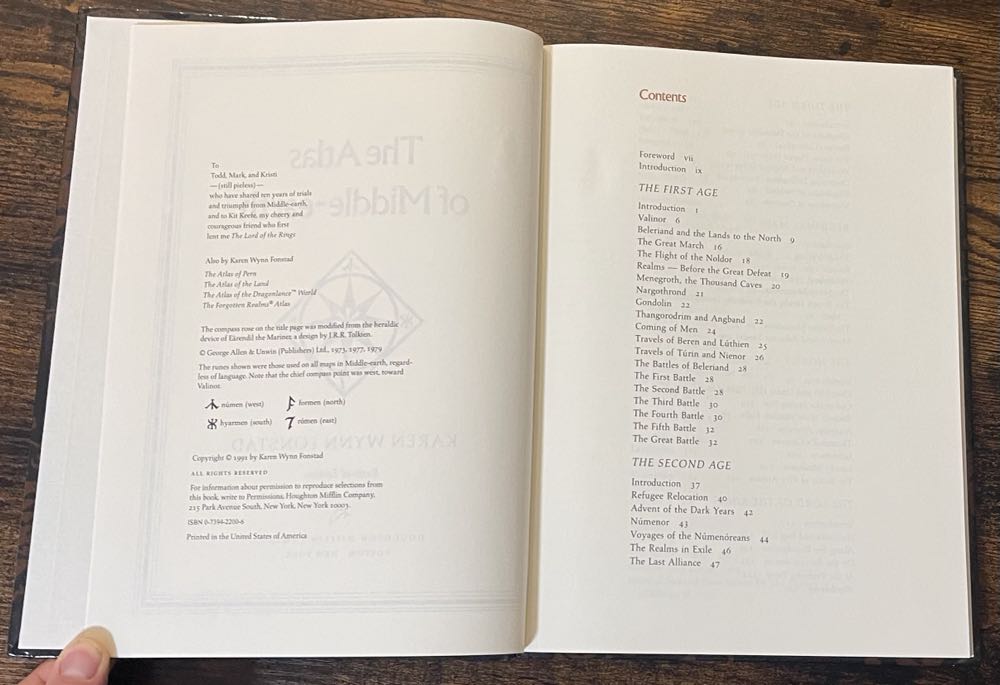 To
Todd, Mark, and Kristi
—(still pieless)—
who have shared ten years of trials
and triumphs from Middle-earth,
and to Kit Keefe, my cheery and
courageous friend who first
lent me The Lord of the Rings
Also by Karen Wynn Fonstad
The Atlas of Pern
The Atlas of the Land
The Atlas of the Dragonlance™ World
The Forgotten Realms® Atlas
The compass rose on the title page was modified from the heraldic
device of Eärendil the Mariner, a design by J.R.R. Tolkien.
© George Allen & Unwin (Publishers) Ltd., 1973, 1977, 1979
The runes shown were those used on all maps in Middle-earth, regard-
less of language. Note that the chief compass point was west, toward
Valinor.
númen (west) formen (north)
hyarmen (south) rómen (east)
Copyright © 1991 by Karen Wynn Fonstad
ALL RIGHTS RESERVED
For information about permission to reproduce selections from
this book, write to Permissions, Houghton Mifflin Company,
215 Park Avenue South, New York, New York 10003.
ISBN 0-7394-2200-6
Printed in the United States of America
Contents
Foreword vii
Introduction ix
THE FIRST AGE
Introduction 1
Valinor 6
Beleriand and the Lands to the North 9
The Great March 16
The Flight of the Noldor 18
Realms — Before the Great Defeat 19
Menegroth, the Thousand Caves 20
Nargothrond 21
Gondolin 22
Thangorodrim and Angband 22
Coming of Men 24
Travels of Beren and Lúthien 25
Travels of Túrin and Nienor 26
The Battles of Beleriand 28
The First Battle 28
The Second Battle 28
The Third Battle 30
The Fourth Battle 30
The Fifth Battle 32
The Great Battle 32
THE SECOND AGE
Introduction 37
Refugee Relocation 40
Advent of the Dark Years 42
Númenor 43
Voyages of the Númenóreans 44
The Realms in Exile 46
The Last Alliance 47